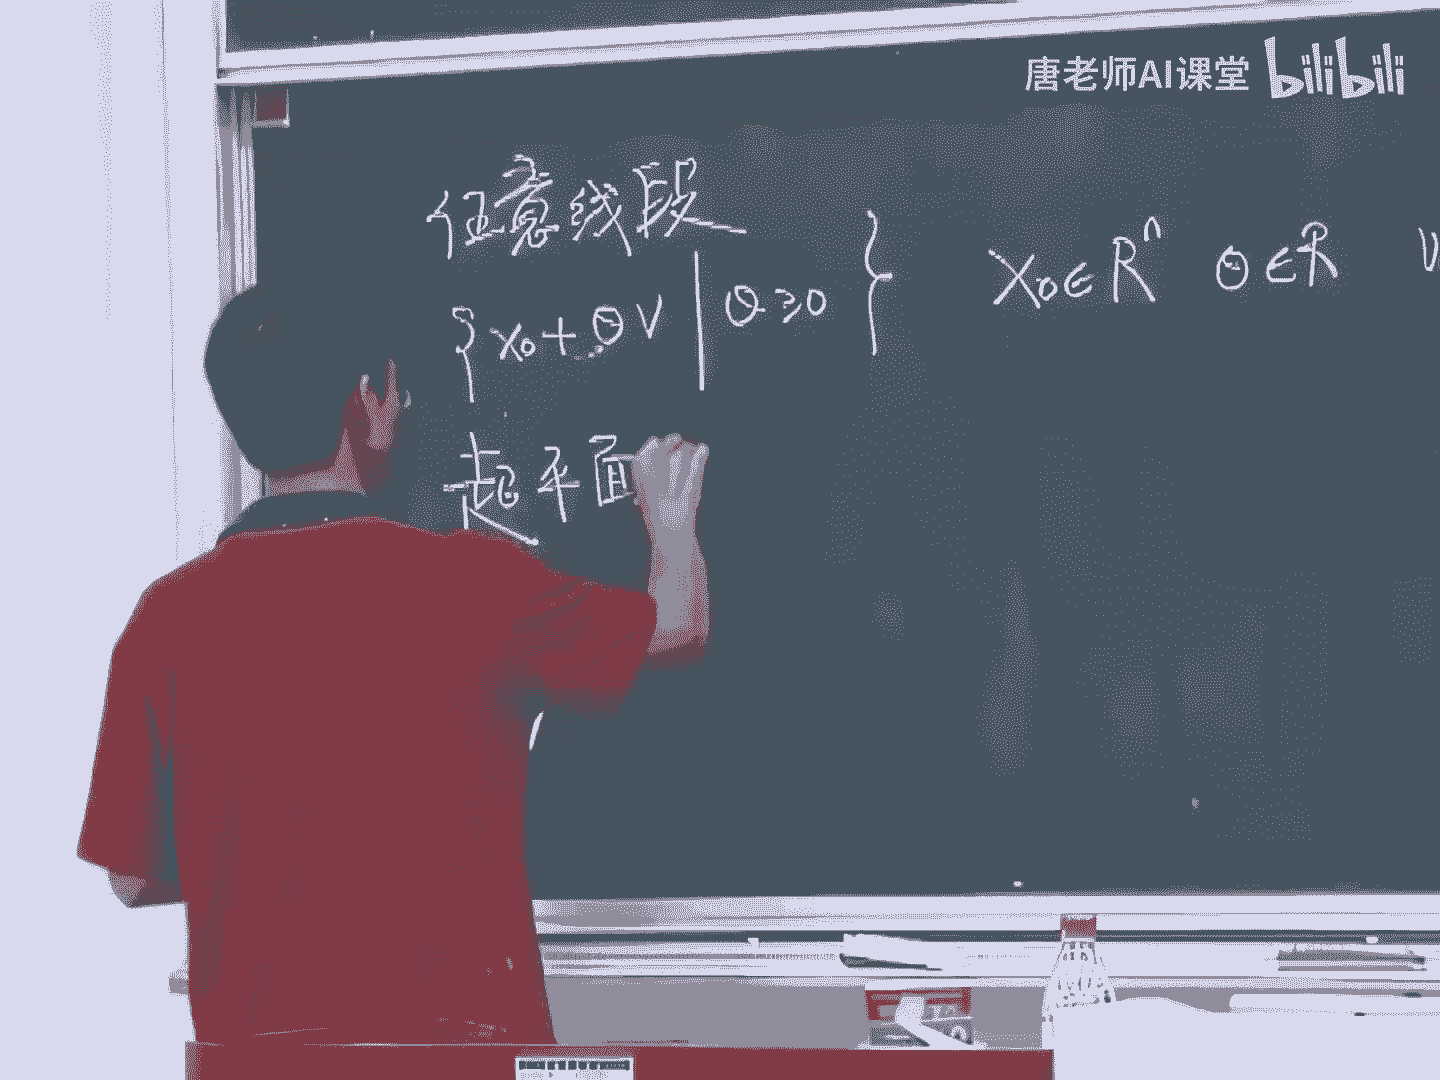 唐老师AI课堂 bilibili
任意线段
{ x₀ + θ v | θ ≥ 0 } x₀ ∈ Rⁿ θ ∈ R v
超平面